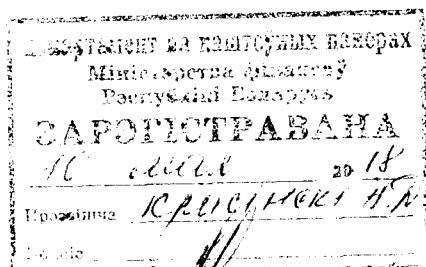 Дэпартамент па каштоўных паперах
Міністэрства фінансаў
Рэспублікі Беларусь
ЗАРЭГІСТРАВАНА
16 мая 2018
Прозвішча